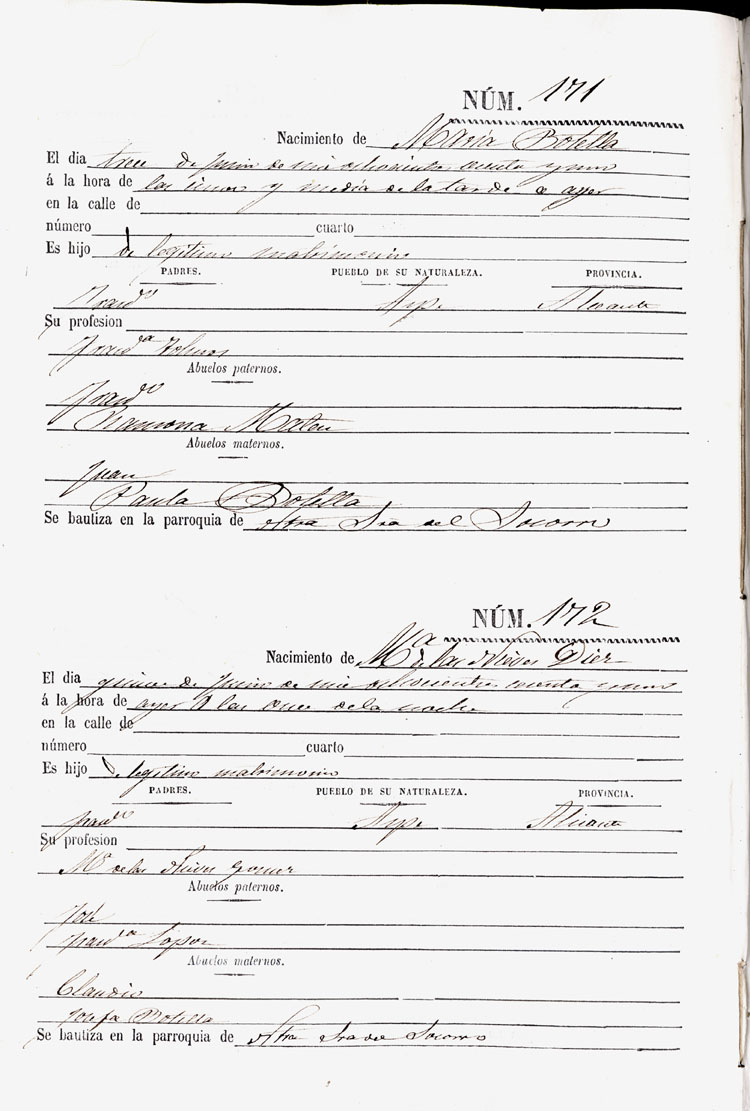 NÚM. 171
Nacimiento de María Botella
El dia trece de Junio de mil ochocientos y uno
á la hora de las y media de la tarde de ayer
en la calle de
número cuarto
Es hijo de legitimo matrimonio
PADRES. PUEBLO DE SU NATURALEZA. PROVINCIA.
Franco Aspe Alicante
Su profesion
Franca
Abuelos paternos.
Franco
Ramona Mateu
Abuelos maternos.
Juan
Paula Botella
Se bautiza en la parroquia de Ntra Sra del Socorro
NÚM. 172
Nacimiento de Ma de las Nieves Diez
El dia quince de Junio de mil ochocientos y uno
á la hora de ayer a las once de la noche
en la calle de
número cuarto
Es hijo de legitimo matrimonio
PADRES. PUEBLO DE SU NATURALEZA. PROVINCIA.
Franco Aspe Alicante
Su profesion
Ma de las Nieves Gomez
Abuelos paternos.
José
Franca
Abuelos maternos.
Claudio
Josefa Botella
Se bautiza en la parroquia de Ntra Sra del Socorro